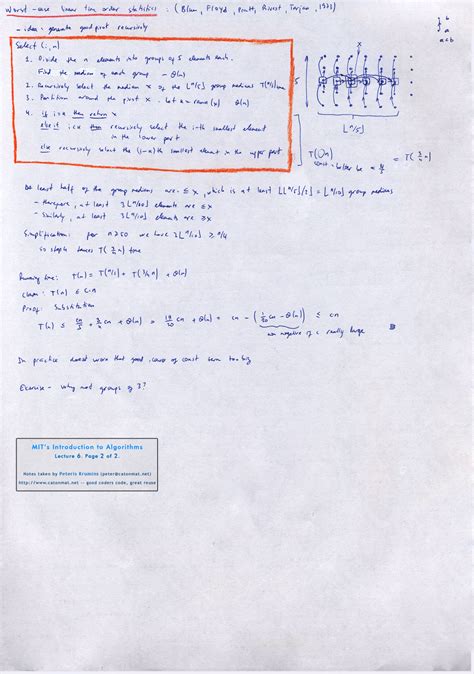 Worst-case linear time order statistics : (Blum, Floyd, Pratt, Rivest, Tarjan, 1973)
- idea: generate good pivot recursively
b
a
a<b
Select (i, n)
1. Divide the n elements into groups of 5 elements each.
Find the median of each group. - Θ(n)
2. Recursively select the median x of the ⌊n/5⌋ group medians T(n/5) time
3. Partition around the pivot x. Let k = rank(x) Θ(n)
4. if i=k then return x
else if i<k then recursively select the i-th smallest element
in the lower part
else recursively select the (i-k)th smallest element in the upper part
x
5
⌊n/5⌋
= T(3/4 n)
At least half of the group medians are ≤ x, which is at least ⌊⌊n/5⌋/2⌋ = ⌊n/10⌋ group medians
- therefore, at least 3⌊n/10⌋ elements are ≤ x
- Similarly, at least 3⌊n/10⌋ elements are ≥ x
Simplification: for n≥50 we have 3⌊n/10⌋ ≥ n/4
so step 4 takes T(3/4 n) time
Running time: T(n) = T(n/5) + T(3/4 n) + Θ(n)
claim: T(n) ≤ c·n
Proof: Substitution
T(n) ≤ cn/5 + 3/4 cn + Θ(n) = 19/20 cn + Θ(n) = cn - (1/20 cn - Θ(n)) ≤ cn
non negative if c really large
In practice doesnt work that good, cause of const term too big
Exercise - why not groups of 3?
MIT's Introduction to Algorithms
Lecture 6. Page 2 of 2.
Notes taken by Peteris Krumins (peter@catonmat.net)
http://www.catonmat.net -- good coders code, great reuse